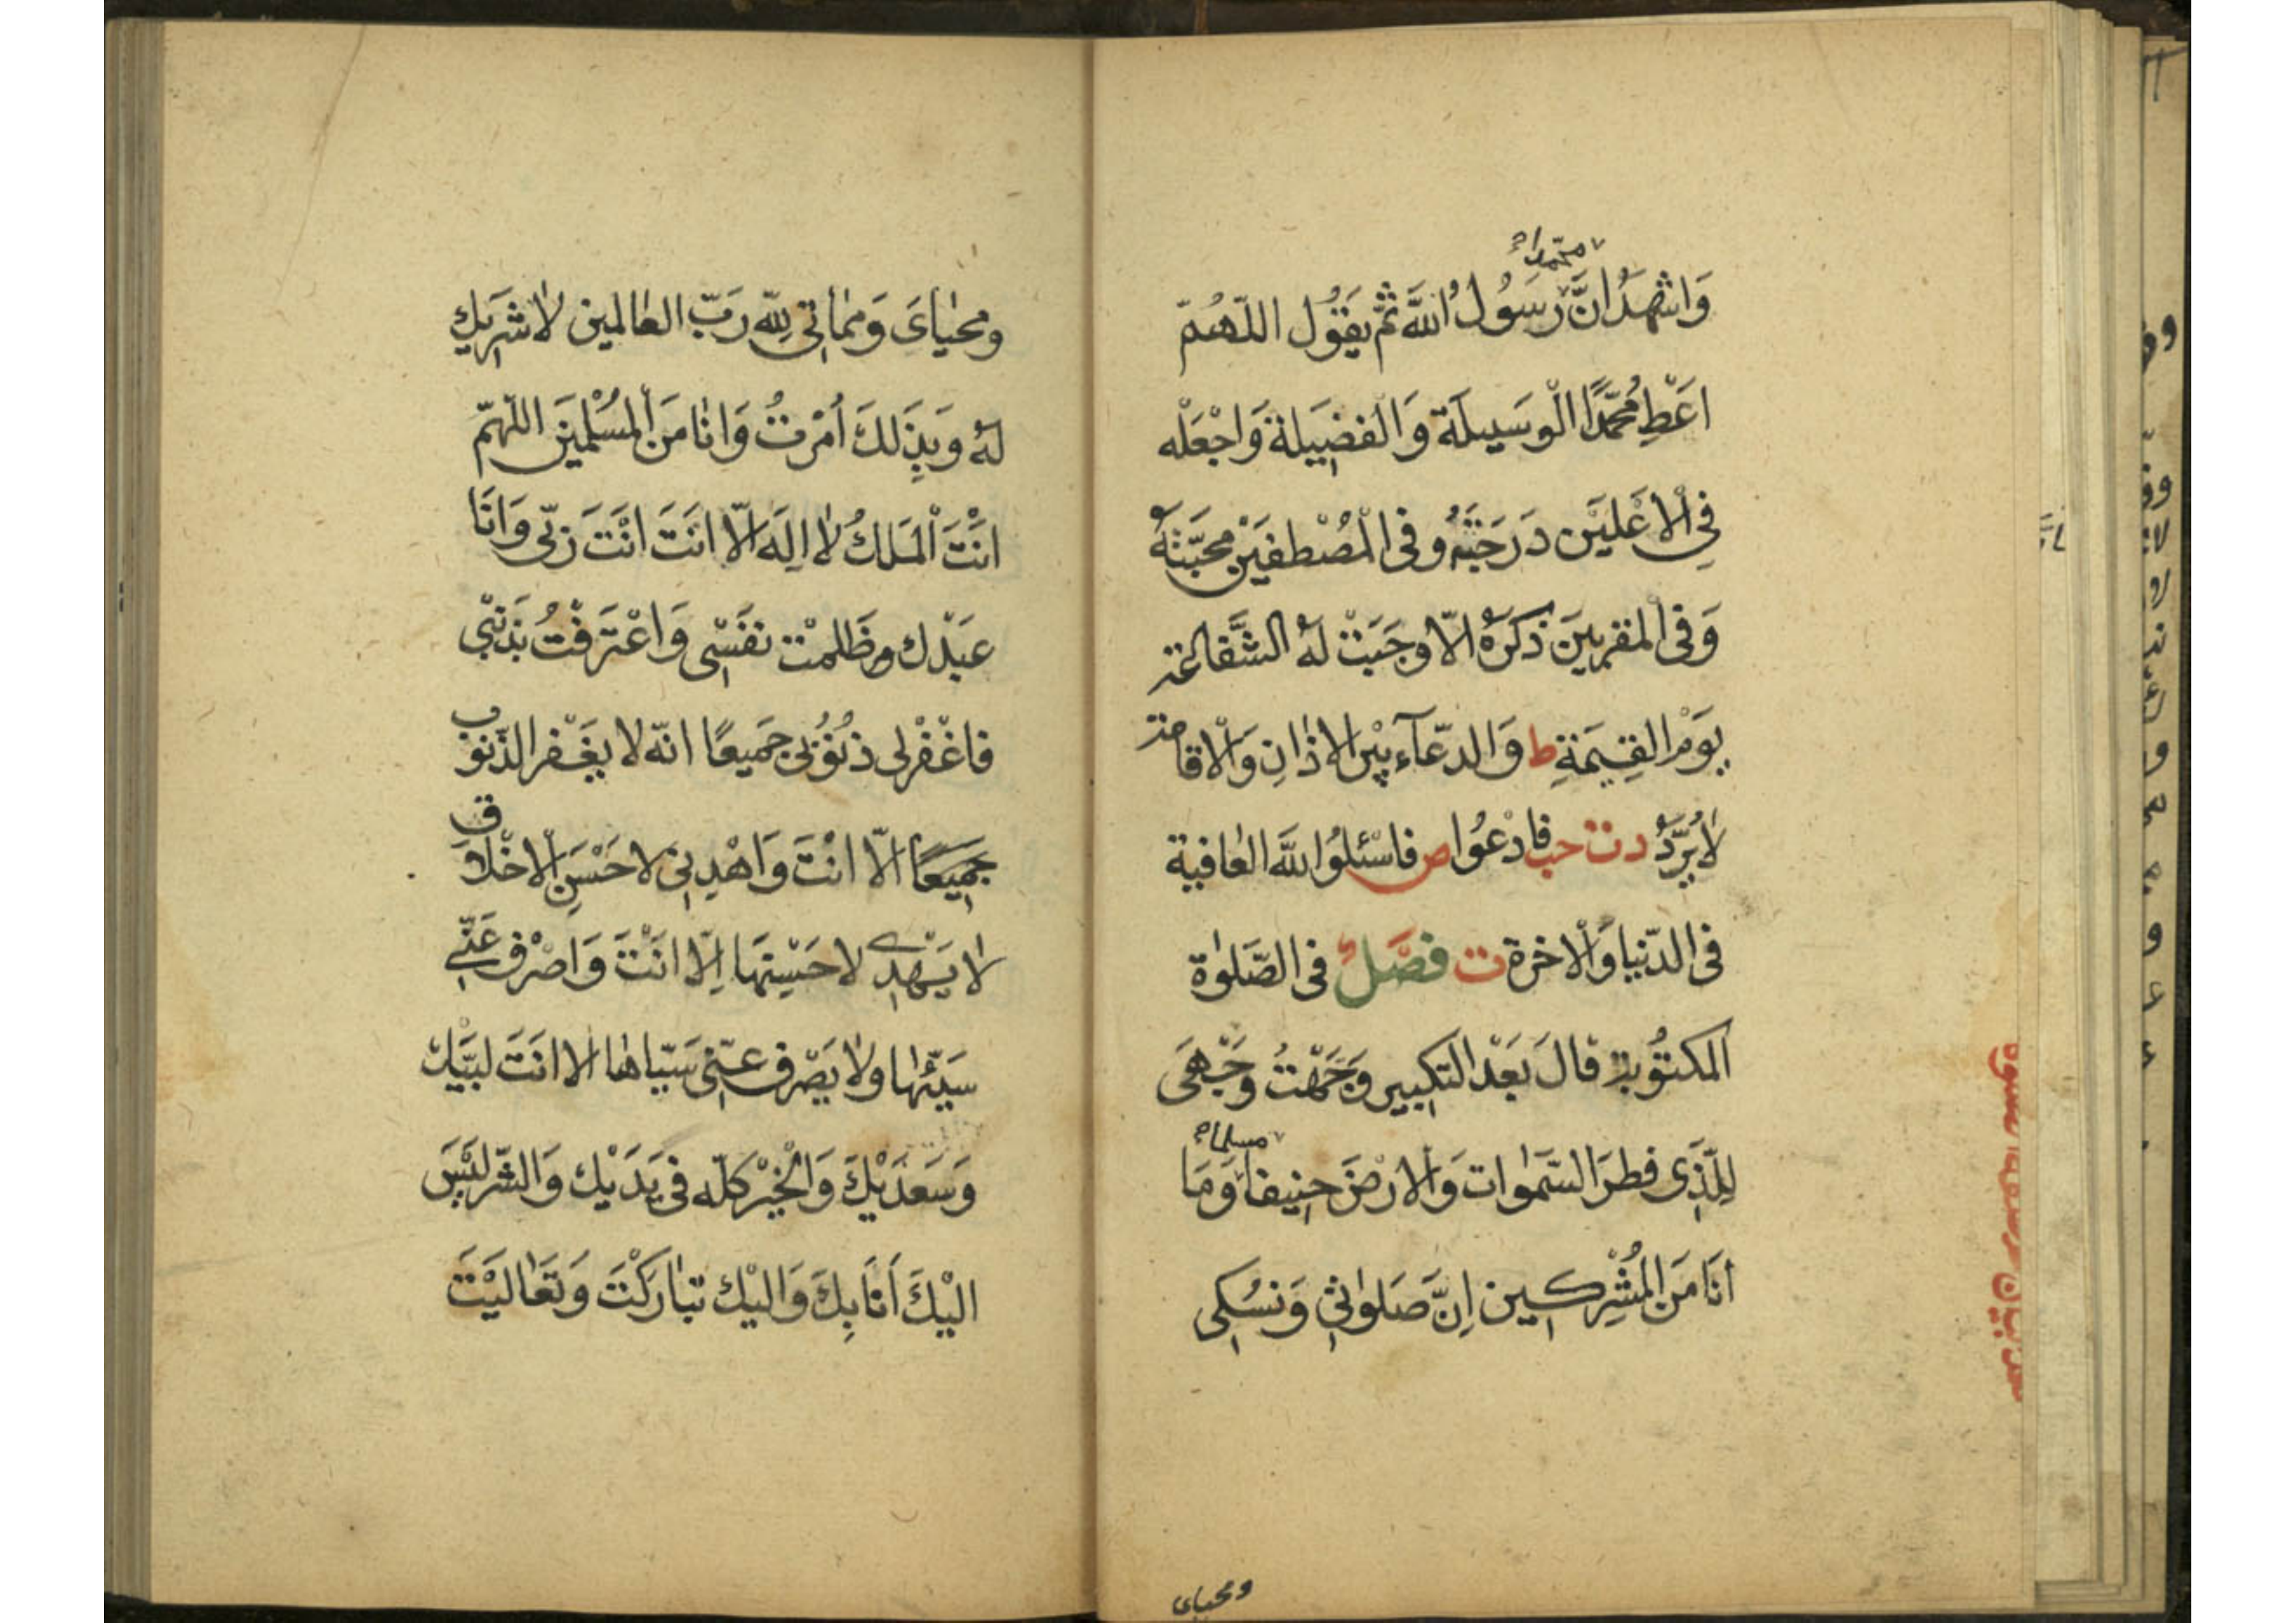 محمدا
وَاشْهَدُ انَّ رَسُولُ اللَّه ثُمَّ يَقُول اللّهُمّ
اعَطْ مُحَمَّدًا الْوسَيلَة وَالْفضِيلة وَاجْعَلْه
فِي الْاعْليَن دَرَجَتَهُ وفى الْمُصْطفيَنْ محَبَّتهُ
وَفى المقربينَ ذكَرَهُ الّا وجَبَتْ لَهُ الشَّفاعة
يوَمْ القِيمَةِ ط وَالدّعآء بيْن الاذَانِ وَالْاقامة
لَا يُرَدُّ د ت حب فادْعُوا ص فاسْئلوُا اللَّه العَافية
فى الدّنيا وَالْاخرة ت فصَّلٌ فى الصَّلوٰة
المكتوُبة قالَ بَعْد التكبِير وَجَهَّتُ وَجْهىَ
مسلما
لِلَّذِى فطرَ السَّموٰات وَالْارْضَ حنِيفا وَمَا
أنَا مَنَ المُشْرِكِين اِنَّ صَلوٰتِى وَنسُكِى
ومحياى
ومحيٰاىَ وَممٰاتِى لِلّه رَبّ العٰالمين لٰا شَريكِ
لهُ وَبِذَلكَ اُمْرتُ وَانٰا مَنَ الْمُسْلمِينَ اللّهمّ
انتَْ الْمَلكُ لٰا الِهَ الّا انتَ انْتَ رَبّى وَانَا
عبَدْك وظَلمتْ نفسَْى وَاعْتَرفْتُ بذَنبْى
فاغْفرْلى ذنوُبى جَميعًا انّه لا يغَفر الذّنوُب
جَميِعًا الّا انتَ وَاهْدِنِى لاحَسْنِ الاخْلَاق
لٰا يَهْدِى لاحَسْنِهَا اِلّا انَتْ وَاصْرف عَنّى
سَيّئهٰا ولٰا يَصْرف عنّىِ سَيّاهٰا الا انتَ لبَّيْك
وَسَعْدَيْكَ وَالْخيْر كلّه فى يَدَيْك وَالشّر ليَْسَ
اليْكَ أنَا بِكَ وَاليْك تبٰارَكْتَ وَتعَٰاليْتَ